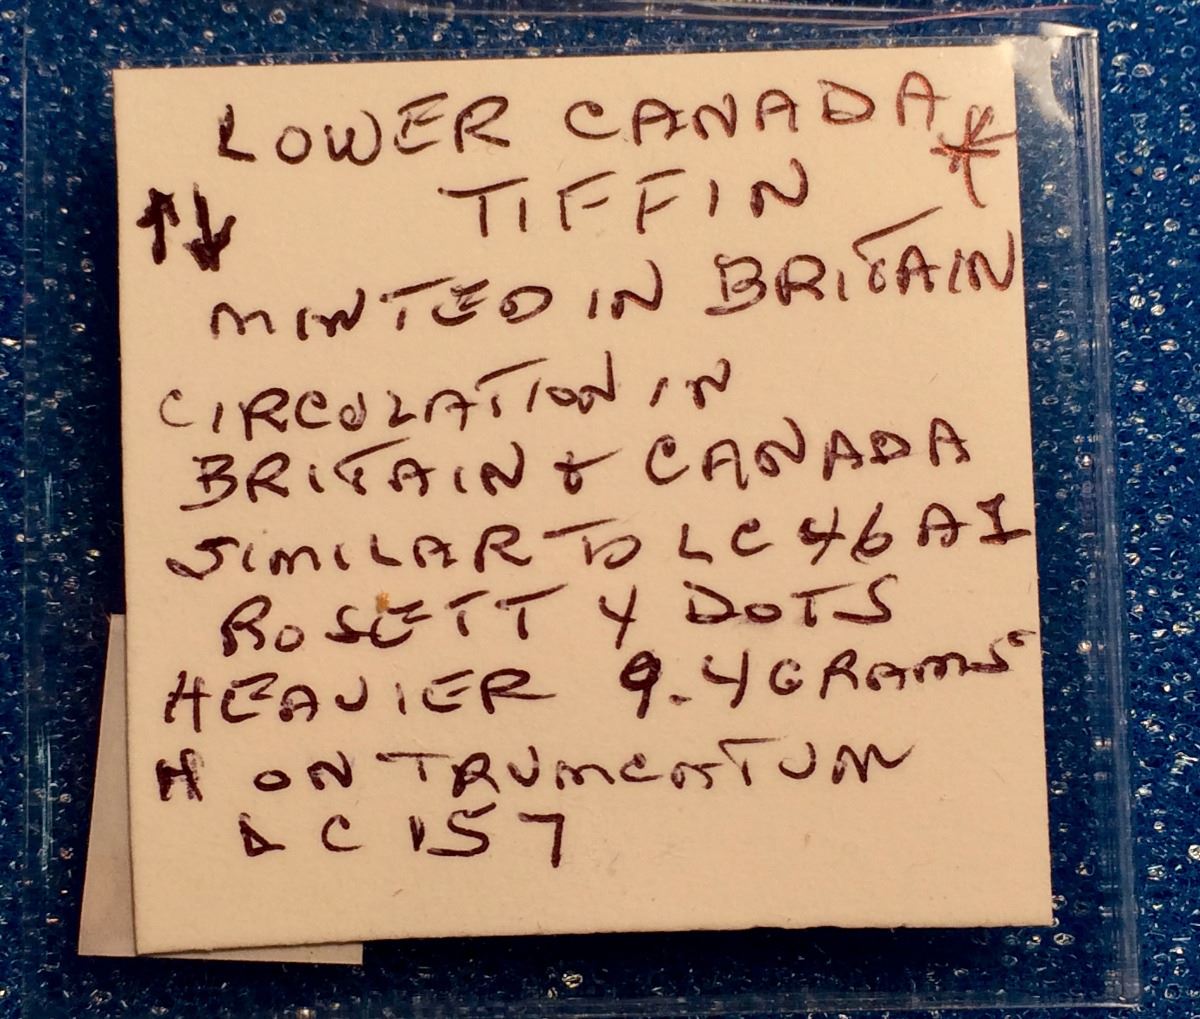 LOWER CANADA *
↑↓ TIFFIN
MINTED IN BRITAIN
CIRCULATION IN
BRITAIN & CANADA
SIMILAR TO LC 46 A1
ROSETT 4 DOTS
HEAVIER 9.4 GRAMS
H ON TRUMCATUM
LC 157